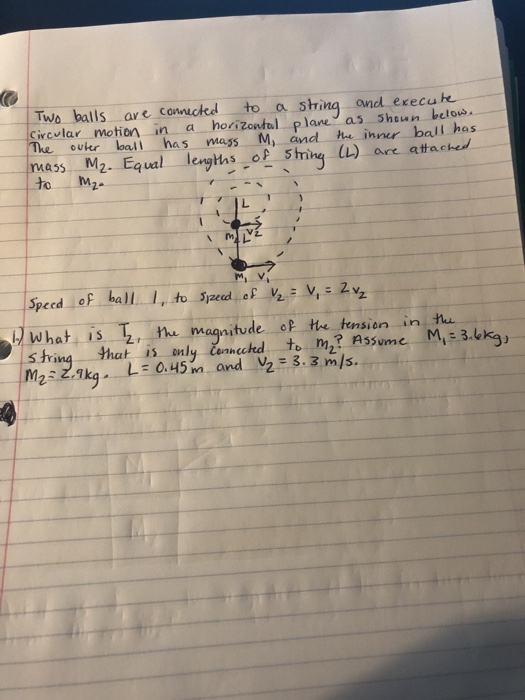 Two balls are connected to a string and execute
circular motion in a horizontal plane as shown below.
The outer ball has mass M, and the inner ball has
mass M2. Equal lengths of string (L) are attached
to M2.
L
m2 L V2
m1 V1
Speed of ball 1, to speed of V2 = V1 = 2V2
1.) What is T2, the magnitude of the tension in the
string that is only connected to m2? Assume M1 = 3.6kg,
M2 = 2.9kg. L = 0.45m and V2 = 3.3 m/s.